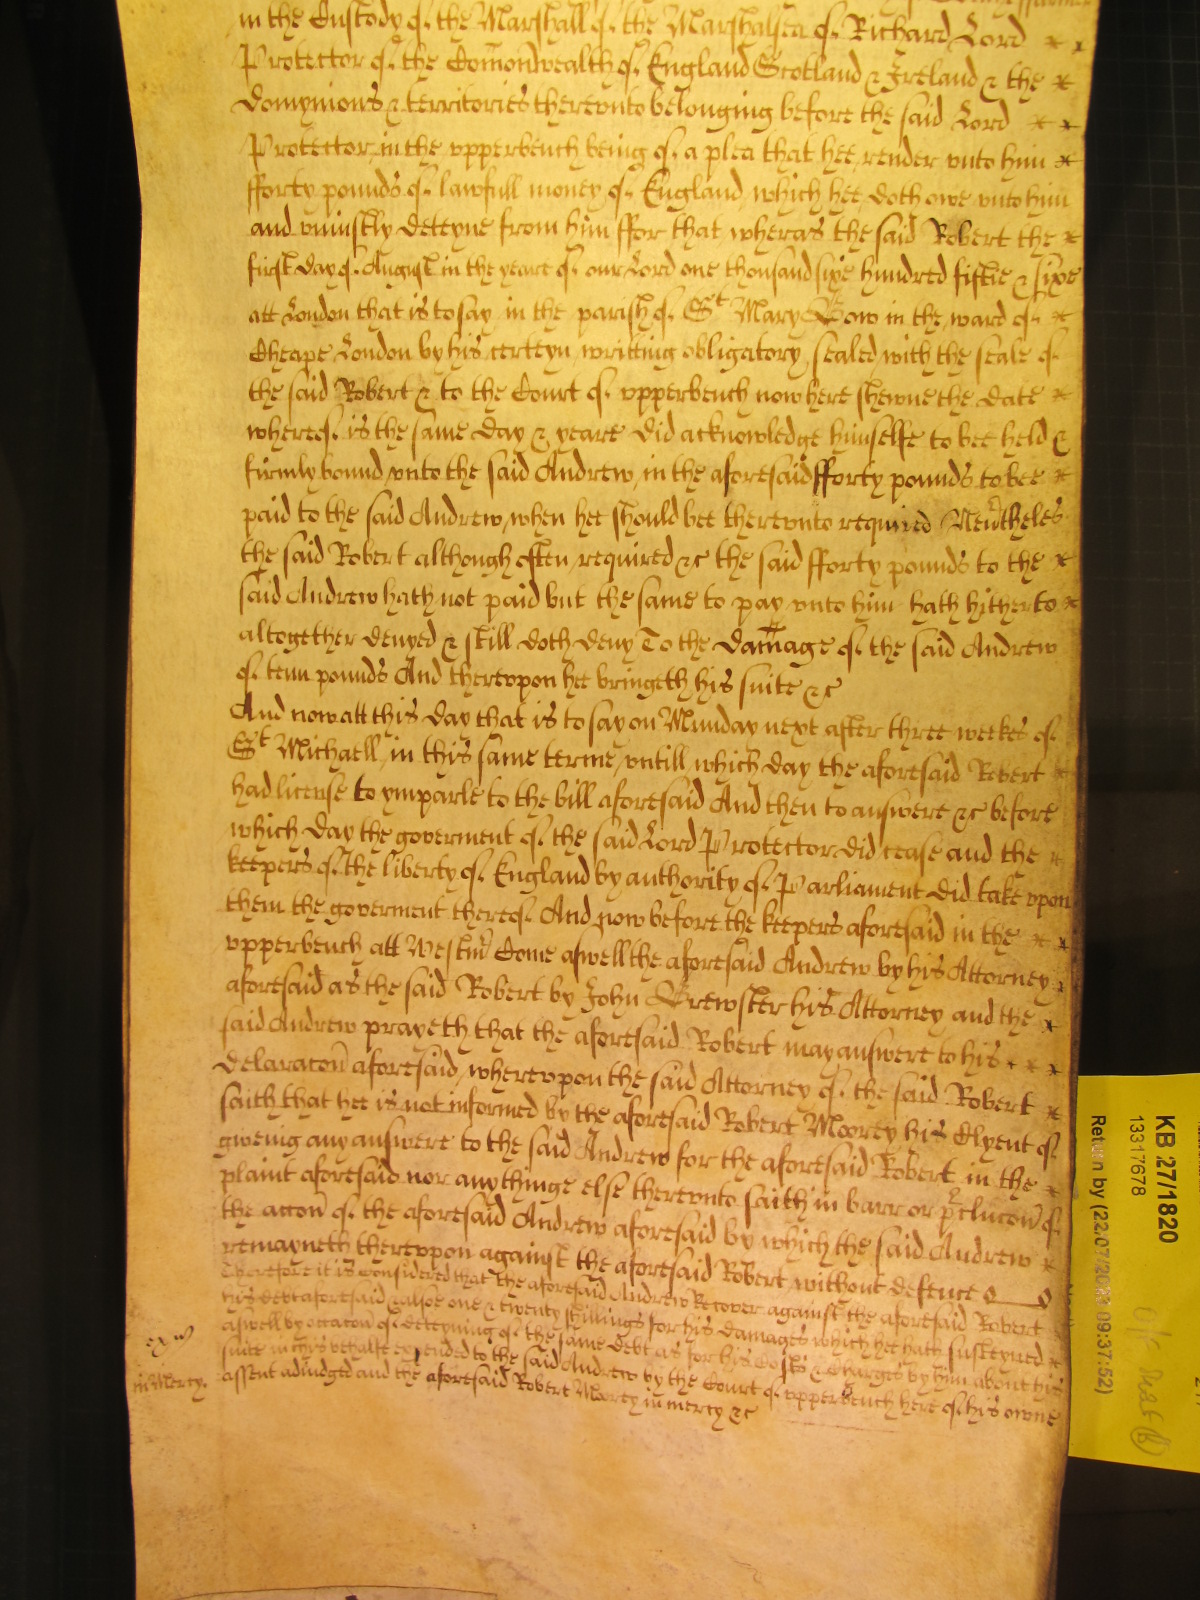 in the Custody of the Marshall of the Marshalsea of Richard Lord
Protector of the Comonwealth of England Scotland & Ireland & the
domynions & territories therevnto belonging before the said Lord
Protector in the vpperbench being of a plea that hee render vnto him
fforty pounds of lawfull money of England which hee doth owe vnto him
and vniustly deteyne from him ffor that wheras the said Robert the
first day of August in the yeare of our Lord one thousand sixe hundred fiftie & sixe
att London that is to say in the parish of St Mary Bow in the ward of
Cheape London by his certeyn writting obligatory sealed with the seale of
the said Robert & to the Court of vpperbench now here shewne the date
wherof is the same day & yeare did acknowledge himselfe to bee held &
firmly bound vnto the said Andrew in the aforesaid fforty pounds to bee
paid to the said Andrew when hee should bee therevnto required Neutheles
the said Robert although often required &c the said fforty pounds to the
said Andrew hath not paid but the same to pay vnto him hath hitherto
altogether denyed & still doth deny To the damage of the said Andrew
of tenn pounds And therevpon hee bringeth his suite &c
And now att this day that is to say on Munday next after three weekes of
St Michaell in this same terme vntill which day the aforesaid Robert
had license to ymparle to the bill aforesaid And then to answere &c before
which day the goverment of the said Lord Protector did cease and the
keepers of the liberty of England by authority of Parliament did take vpon
them the goverment thereof And now before the keepers aforesaid in the
vpperbench att Westmr Come aswell the aforesaid Andrew by his Attorney
aforesaid as the said Robert by John Brewster his Attorney and the
said Andrew prayeth that the aforesaid Robert may answere to his
delaracon aforesaid wherevpon the said Attorney of the said Robert
saith that hee is not informed by the aforesaid Robert Moorey his Clyent of
giveing any answere to the said Andrew for the aforesaid Robert in the
plaint aforesaid nor any thinge else therevnto saith in barr or pclucon of
the accon of the aforesaid Andrew aforesaid by which the said Andrew
remayneth therevpon against the aforesaid Robert without defence
Therefore it is Considered that the aforesaid Andrew Recover against the aforesaid Robert
his debt aforesaid & alsoe one & twenty shillings for his damages which hee hath susteyned
aswell by occacon of deteyning of the same debt as for his Costs & Charges by him about his
suite in this behalfe expended to the said Andrew by the Court of vpperbench here of his owne
assent adiudged and the aforesaid Robert Moorey in mercy &c
in Mercy.
KB 27/1820
13317678
Return by (22.07/2023 09:37:52)